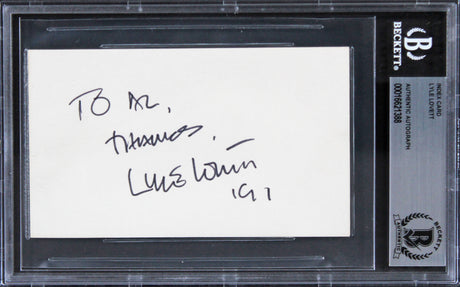 TO AL,
THANKS,
LYLE LOVETT
'91
BECKETT
INDEX CARD
LYLE LOVETT
AUTHENTIC AUTOGRAPH
00016621388
BECKETT
AUTHENTICATED